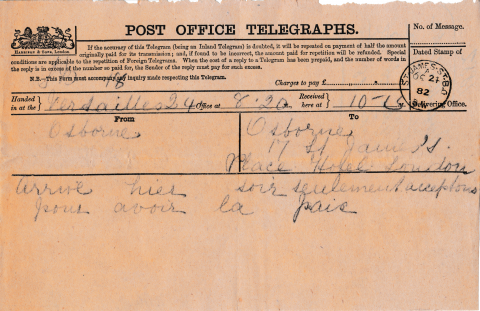 POST OFFICE TELEGRAPHS.
No. of Message.
HARRISON & SONS, LONDON.
If the accuracy of this Telegram (being an Inland Telegram) is doubted, it will be repeated on payment of half the amount
originally paid for its transmission; and, if found to be incorrect, the amount paid for repetition will be refunded. Special
conditions are applicable to the repetition of Foreign Telegrams. When the cost of a reply to a Telegram has been prepaid, and the number of words in
the reply is in excess of the number so paid for, the Sender of the reply must pay for such excess.
Dated Stamp of
N.B.—This Form must accompany any inquiry made respecting this Telegram.
Charges to pay £
ST JAMES'S ST B.O
OC 21
82
Delivering Office.
Handed in at the Versailles 24 Office at 8.20 Received here at 10-15
From To
Osborne Osborne
17 St James's
Place Hotel London
Arrive hier soir seulement acceptons
pour avoir la paix